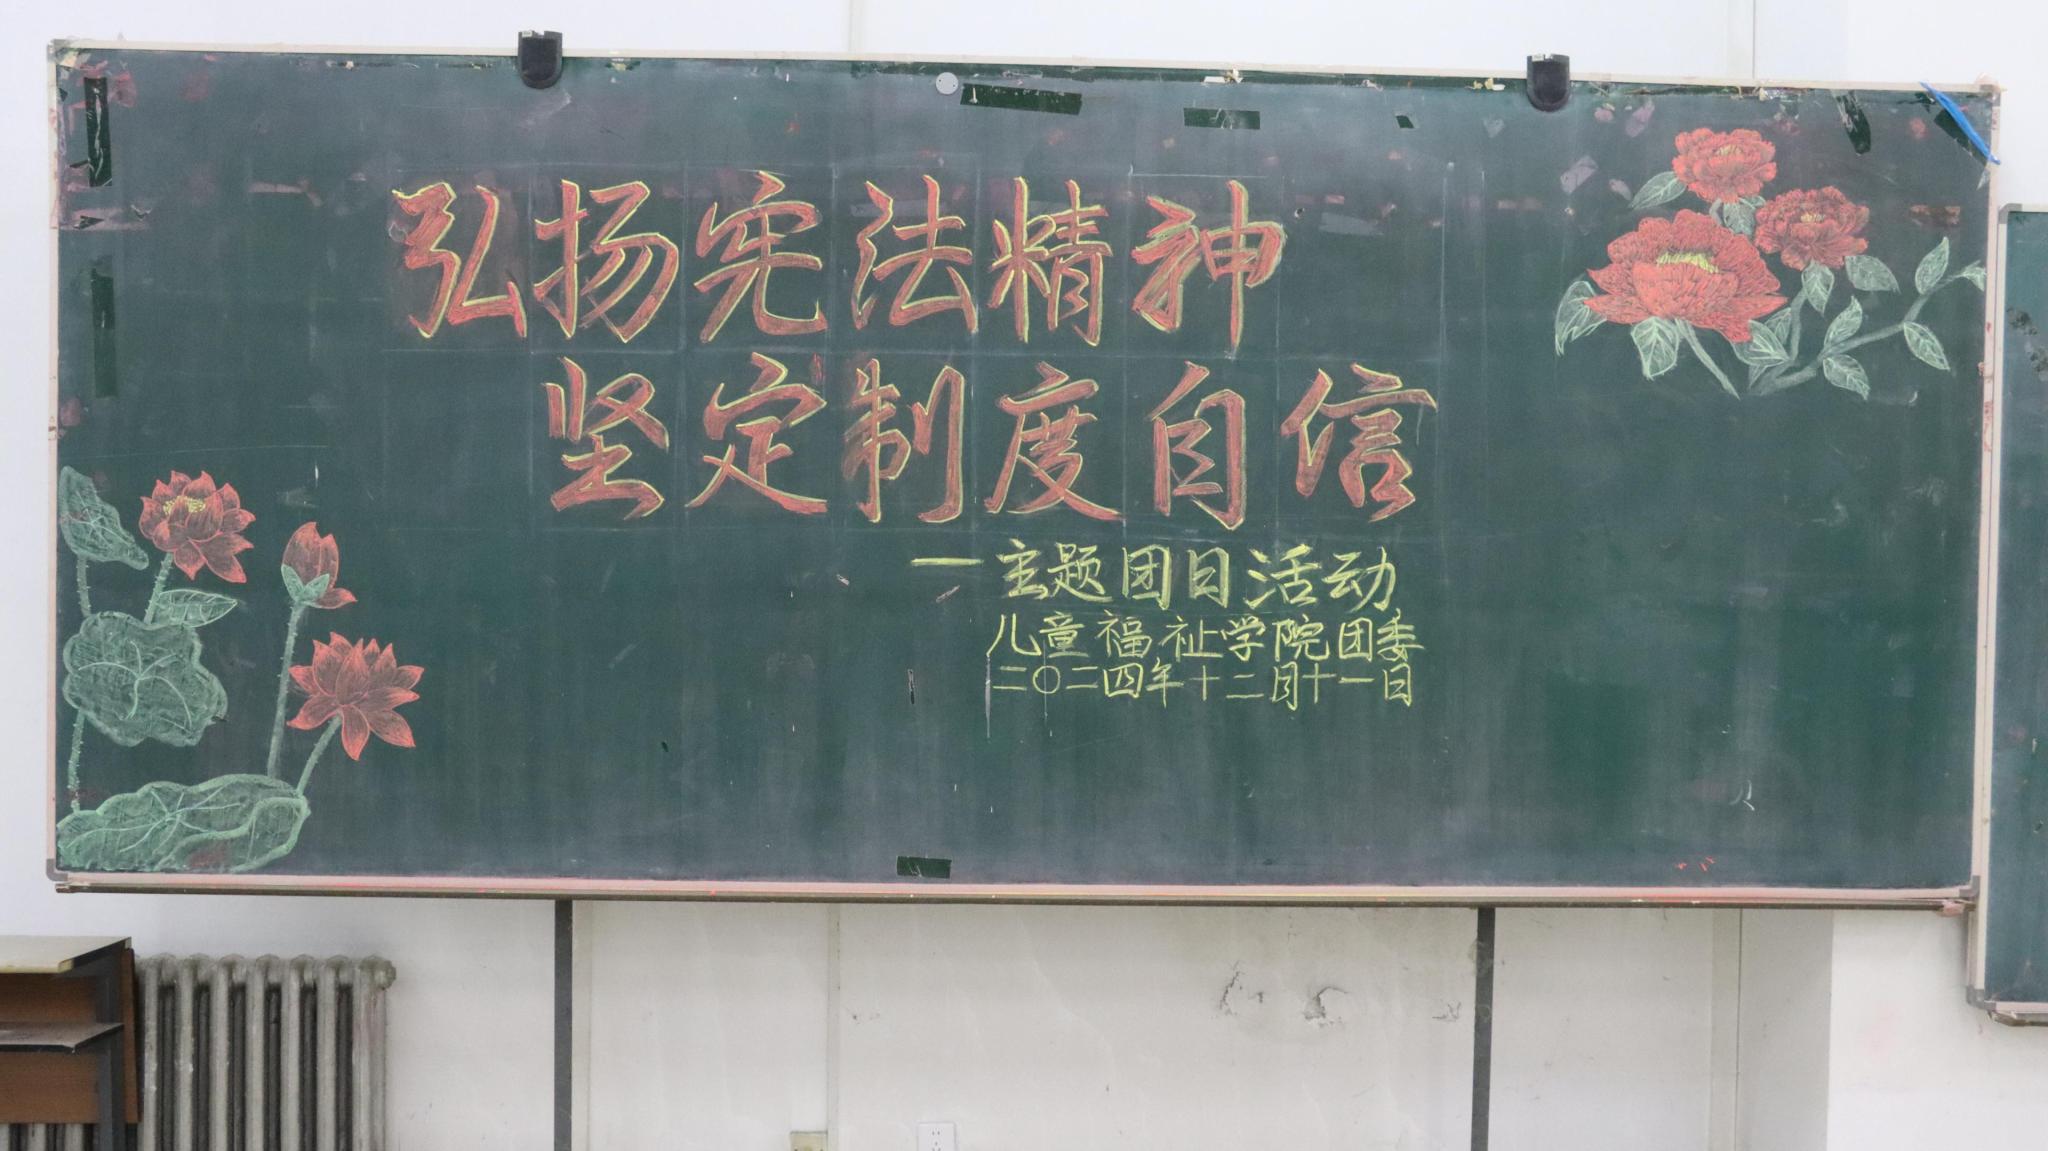 弘扬宪法精神
坚定制度自信
一主题团日活动
儿童福祉学院团委
二〇二四年十二月十一日